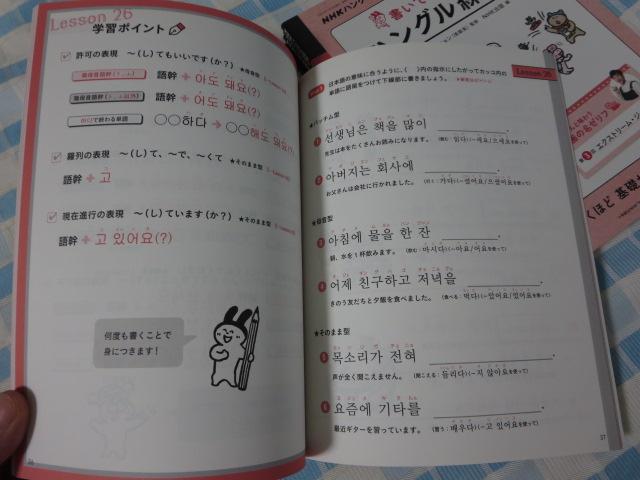 Lesson 26
学習ポイント
許可の表現 〜(し)てもいいです(か?) ★陽陰型
語幹 + 아도 돼요(?)
語幹 + 어도 돼요(?)
하다で終わる単語 ○○하다 → ○○해도 돼요(?)
羅列の表現 〜(し)て、〜で、〜くて ★そのまま型
語幹 + 고
現在進行の表現 〜(し)ています(か?) ★そのまま型
語幹 + 고 있어요(?)
何度も書くことで
身につきます!
36
日本語の意味に合うように、( )内の指示にしたがってカッコ内の
単語に語尾をつけて下線部に書きましょう。
Lesson 26
★パッチム型
1 선생님은 책을 많이 .
先生は本をたくさんお読みになります。
2 아버지는 회사에 .
お父さんは会社に行かれました。
★陽陰型
3 아침에 물을 한 잔 .
朝、水を1杯飲みます。 (飲む:마시다)(-아요/어요を使って)
4 어제 친구하고 저녁을 .
きのう友だちと夕飯を食べました。 (食べる:먹다)(-았어요/었어요を使って)
★そのまま型
5 목소리가 전혀 .
声が全く聞こえません。 (聞こえる:들리다)(-지 않아요を使って)
6 요즘에 기타를 .
最近ギターを習っています。 (習う:배우다)(-고 있어요を使って)
37
NHK
書いて
ハングル練